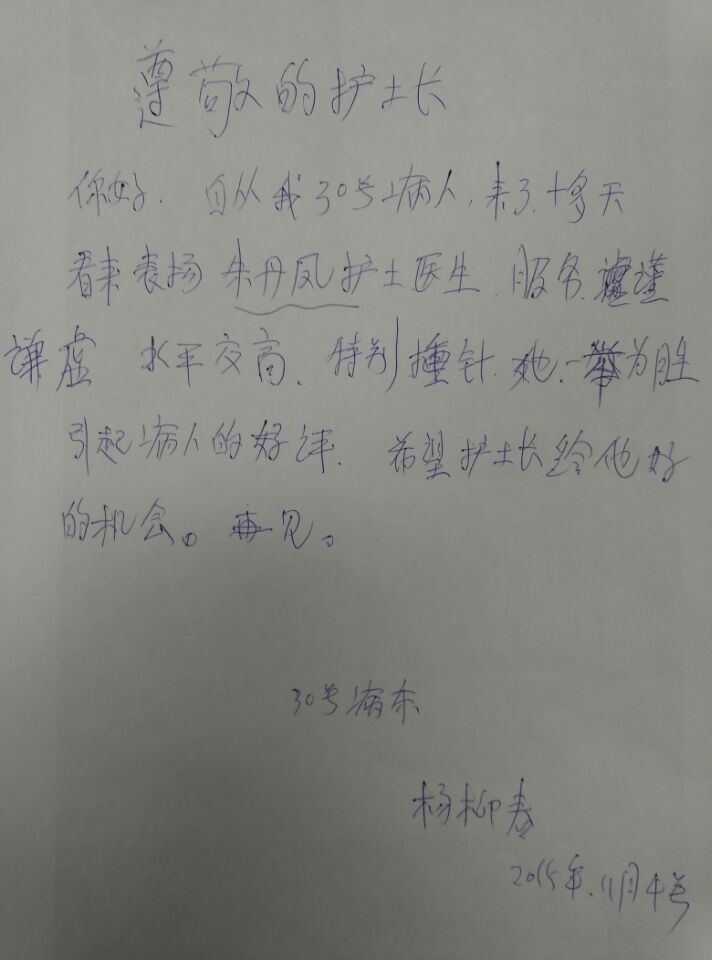 尊敬的护士长
你好. 自从我30号病人,来了.十多天
看来表扬 朱丹凤护士医生.服务.谨
谦虚 水平交高、特别 针.她.一举为胜
引起病人的好评. 希望护士长给他好
的机会。再见。
30号病床
杨柳春
2015年.11月4号